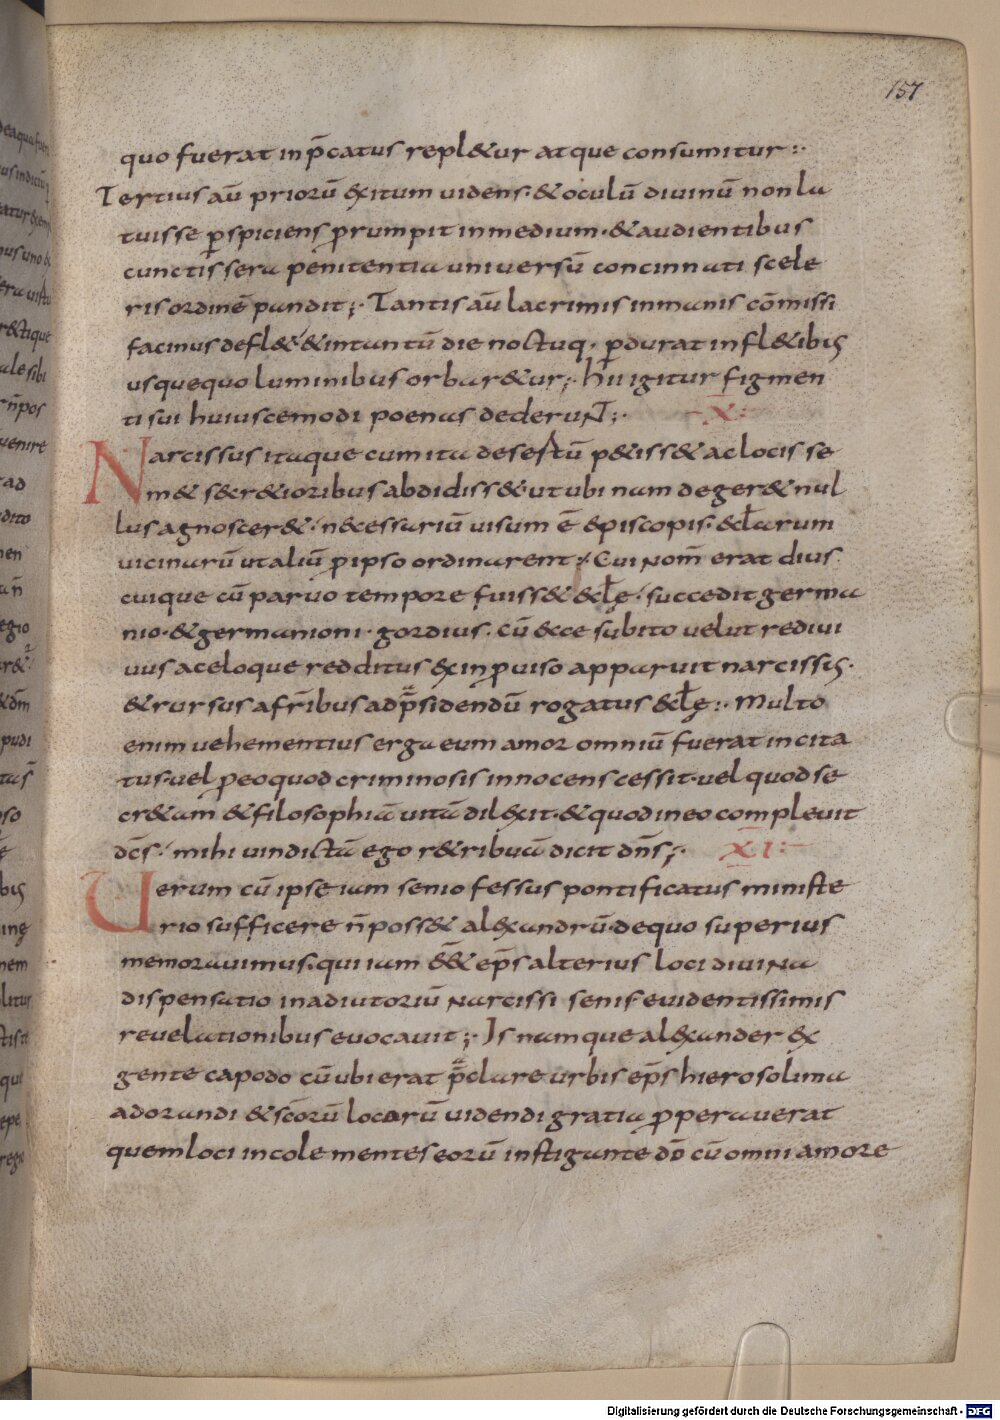 157
quo fuerat inp̄catus repl&ur atque consumitur:·
Tertius aū priorū exitum uidens·&oculū diuinū non la
tuisse ꝑspiciens prumpit inmedium·&audientibus
cunctis sera penitentia uniuersū concinnati scele
ris ordinē pandit;· Tantis aū lacrimis inmanis cōmissi
facinus defl&·&intantū die noctuq· ꝑdurat in fl&ibus
usquequo luminibus orbar&ur;· hii igitur figmen
ti sui huiuscemodi poenas dederuNT;· X:
Narcissus itaque cum ita desestū p&iss& ac locis se
m& s&cr&ioribus abdidiss&·ut ubi nam deger& nul
lus agnoscer&·necessariū uisum ē episcopis·&cl̄arum
uicinarū ut aliū pipso ordinarent;· Cui nom̄ erat dius·
cuique cū paruo tempore fuiss& &cl̄ę·succedit germa
nio·&germanioni·gordius·cū ecce subito uelut rediui
uus aceloque redditus &xinprouiso apparuit narcissus·
&rursus afrībus adp̄sidendū rogatus &cl̄ę:· Multo
enim uehementius erga eum amor omniū fuerat incita
tus·uel peoquod criminosis innocens cessit·uel quod se
cr&am &filosophiā uitā dilexit·&quod in eo compleuit
dc̄s·mihi uindictā ego r&ribuā dicit dn̄s;· XI:
Uerum cū ipse iam senio fessus pontificatus ministe
rio sufficere n̄ poss& alexandrū·dequo superius
memorauimus·qui iam ēē& ep̄s alterius loci diuiNa
dispensatio inadiutoriū Narcissi senis euidentissimis
reuelationibus euocauit;· Is namque alexander ex
gente capodo cū ubi erat p̄clare urbis ep̄s hierosolima
adorandi &sc̄orū locorū uidendi gratia properauerat
quem loci incole mentes eorū instigante dō cū omni amore
Digitalisierung gefördert durch die Deutsche Forschungsgemeinschaft - DFG